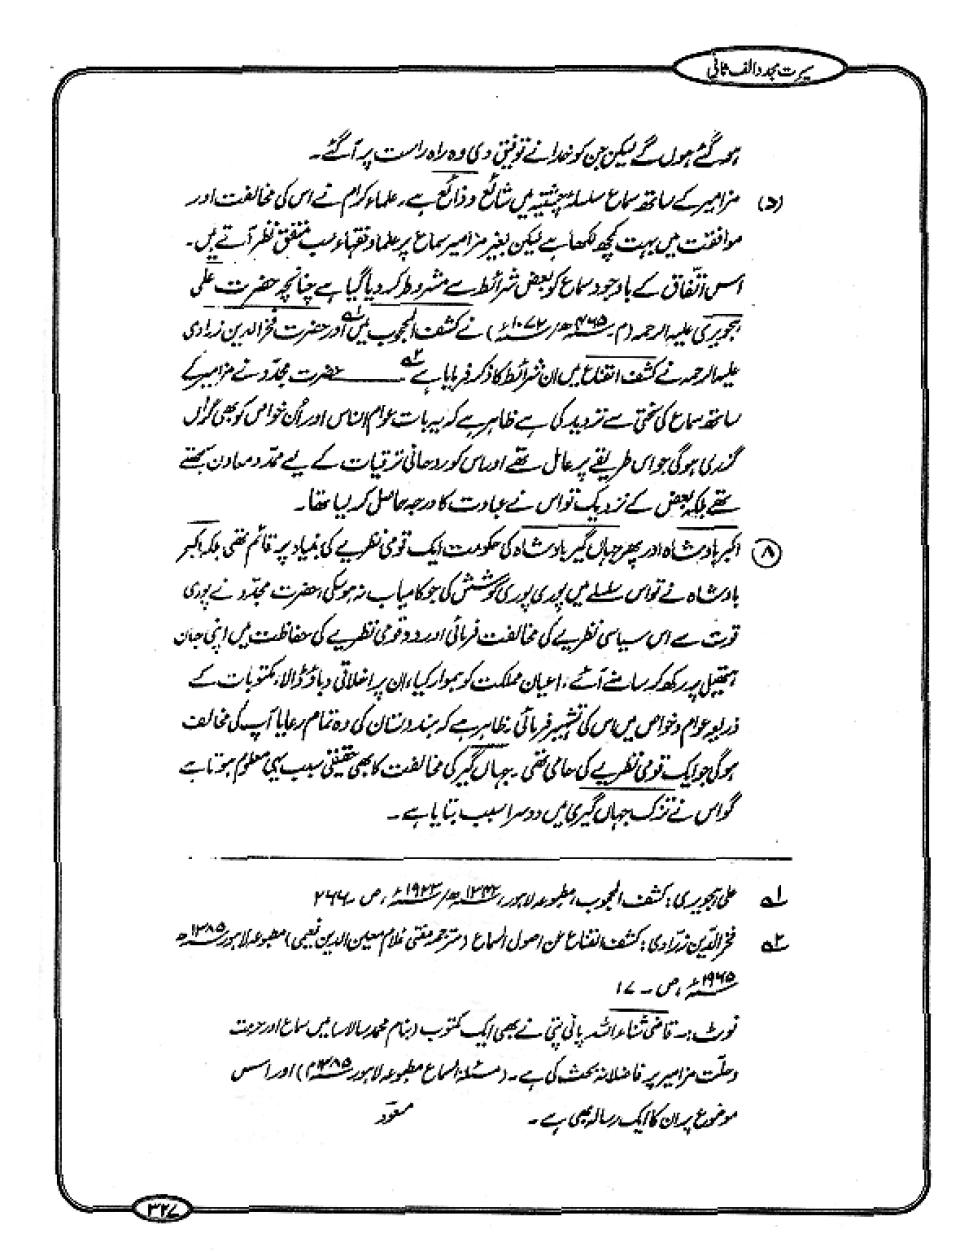 سیرت مجدد الف ثانی
ہو گئے ہوں گے لیکن جن کو خدا نے توفیق دی وہ راہ راست پر آ گئے۔
(۵) مزامیر کے ساتھ سماع سلسلۂ چشتیہ میں شائع و ذائع ہے۔ علماء کرام نے اس کی مخالفت اور
موافقت میں بہت کچھ لکھا ہے لیکن بغیر مزامیر سماع پر علماء و فقہاء سب متفق نظر آتے ہیں۔
اس اتّفاق کے باوجود سماع کو بعض شرائط سے مشروط کر دیا گیا ہے چنانچہ حضرت علی
ہجویری علیہ الرحمہ (م ۴۶۵ھ/۱۰۷۲ء) نے کشف المحجوب میں۱؎ اور حضرت فخر الدین زرادی
علیہ الرحمہ نے کشف القناع میں ان شرائط کا ذکر فرمایا ہے۲؎ ـــــــــ حضرت مجدّد نے مزامیر کے
ساتھ سماع کی سختی سے تردید کی ہے ظاہر ہے کہ یہ بات عوام الناس اور اُن خواص کو بھی گراں
گزری ہوگی جو اس طریقے پر عامل تھے اور اس کو روحانی ترقیات کے لیے ممد و معاون سمجھتے
تھے بلکہ بعض کے نزدیک تو اس نے عبادت کا درجہ حاصل کر لیا تھا۔
(۸) اکبر بادشاہ اور پھر جہاں گیر بادشاہ کی حکومت ایک قومی نظریے کی بنیاد پر قائم تھی بلکہ اکبر
بادشاہ نے تو اس سلسلے میں پوری پوری کوشش کی جو کامیاب نہ ہو سکی، حضرت مجدّد نے پوری
قوت سے اس سیاسی نظریے کی مخالفت فرمائی اور دو قومی نظریے کی حفاظت میں اپنی جان
ہتھیلی پر رکھ کر سامنے آئے، اعیان مملکت کو ہموار کیا، ان پر اخلاقی دباؤ ڈالا، مکتوبات کے
ذریعہ عوام و خواص میں اس کی تشہیر فرمائی۔ ظاہر ہے کہ ہندوستان کی وہ تمام رعایا آپ کی مخالف
ہوگی جو ایک قومی نظریے کی حامی تھی۔ جہاں گیر کی مخالفت کا بھی حقیقی سبب یہی معلوم ہوتا ہے
گو اس نے تزک جہاں گیری میں دوسرا سبب بتایا ہے۔
۱؎ علی ہجویری: کشف المحجوب، مطبوعہ لاہور، ۱۳۴۲ھ/۱۹۲۳ء، ص ۲۶۶
۲؎ فخر الدّین زرّادی: کشف القناع عن اصول السماع (مترجمہ مفتی غلام معین الدین نعیمی) مطبوعہ لاہور ۱۳۸۵ھ
۱۹۶۵ء، ص۔ ۱۷
نوٹ:۔ قاضی ثناء اللہ پانی پتی نے بھی ایک مکتوب (بنام محمد سالار) میں سماع اور حرمت
و حلّت مزامیر پر فاضلانہ بحث کی ہے۔ (مسئلہ السماع مطبوعہ لاہور ۱۳۸۵ھ) اور اسس
موضوع پر ان کا ایک رسالہ بھی ہے۔ مسعود
۳۲۷